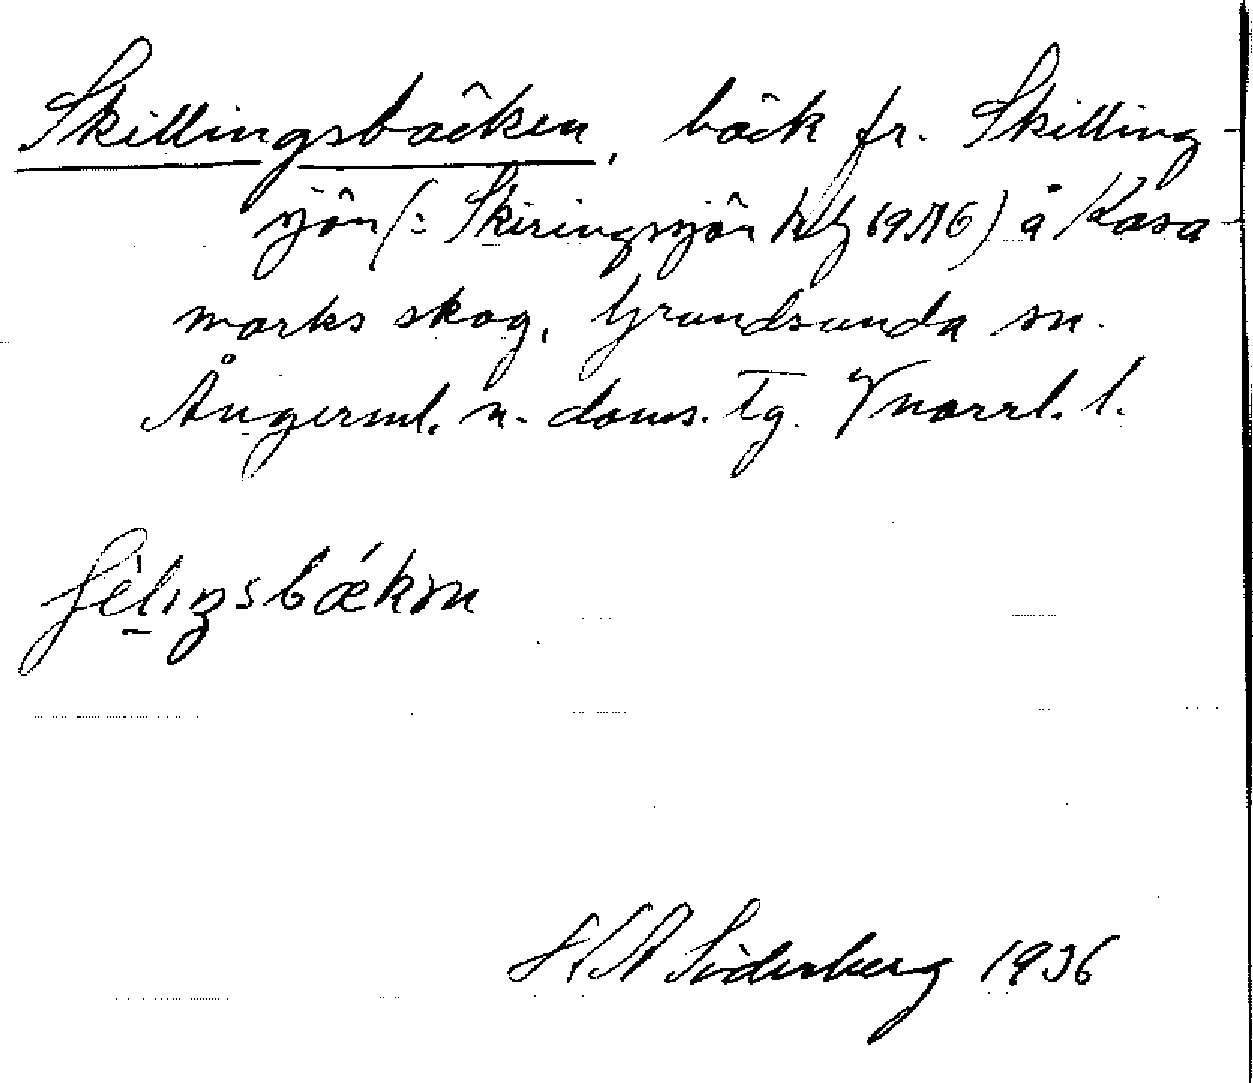 Skillingsbäcken, bäck fr. Skilling-
sjön (: Skiringsjön 1916) å Kasa-
marks skog, Grundsunda sn.
Ångerml. n. doms. Tg. Vnorrl. l.
Söderberg 1936